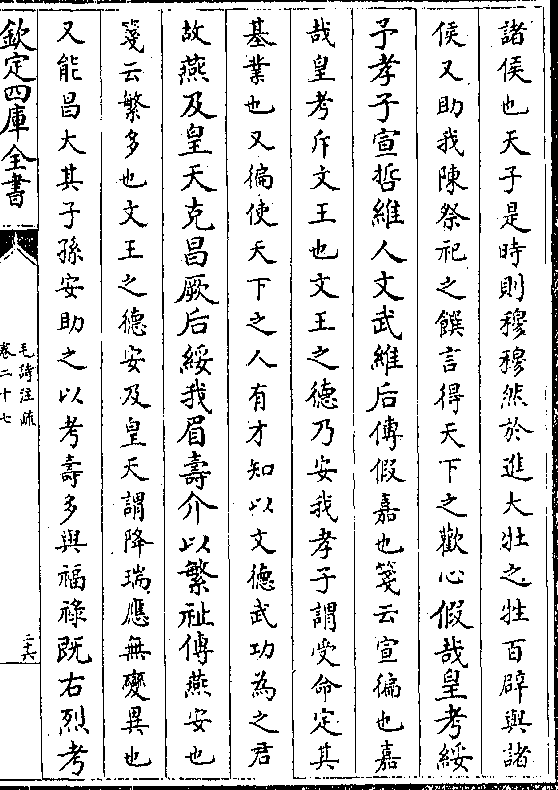 諸侯也天子是時則穆穆然於進大牡之牲百辟與諸
侯又助我陳祭祀之饌言得天下之歡心假哉皇考綏
予孝子宣哲維人文武維后傳假嘉也箋云宣徧也嘉
哉皇考斥文王也文王之德乃安我孝子謂受命定其
基業也又徧使天下之人有才知以文德武功為之君
故燕及皇天克昌厥后綏我眉壽介以繁祉傳燕安也
箋云繁多也文王之德安及皇天謂降瑞應無變異也
又能昌大其子孫安助之以考壽多與福祿既右烈考
欽定四庫全書
毛詩注疏
卷二十七
三六